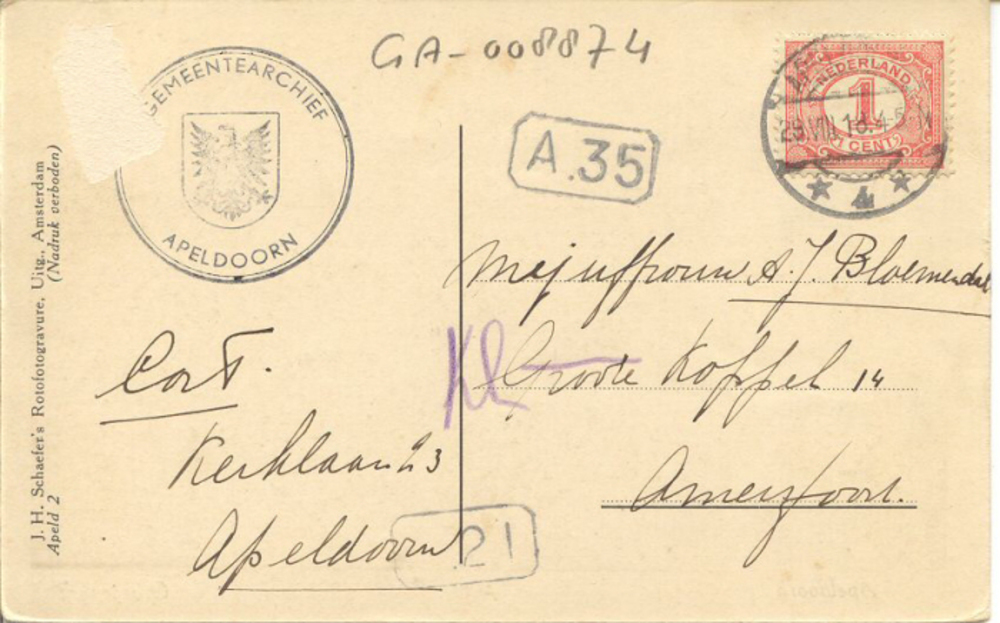 GA-008874
GEMEENTEARCHIEF
APELDOORN
A.35
NEDERLAND
1
1 CENT
29 VIII 4-5
4
Mejuffrouw A. J. Bloemendal
Groote Koppel 14
Amersfoort.
Kerklaan 23
Apeldoorn
21
J. H. Schaefer's Rotofotogravure, Uitg., Amsterdam
Apeld 2 (Nadruk verboden)